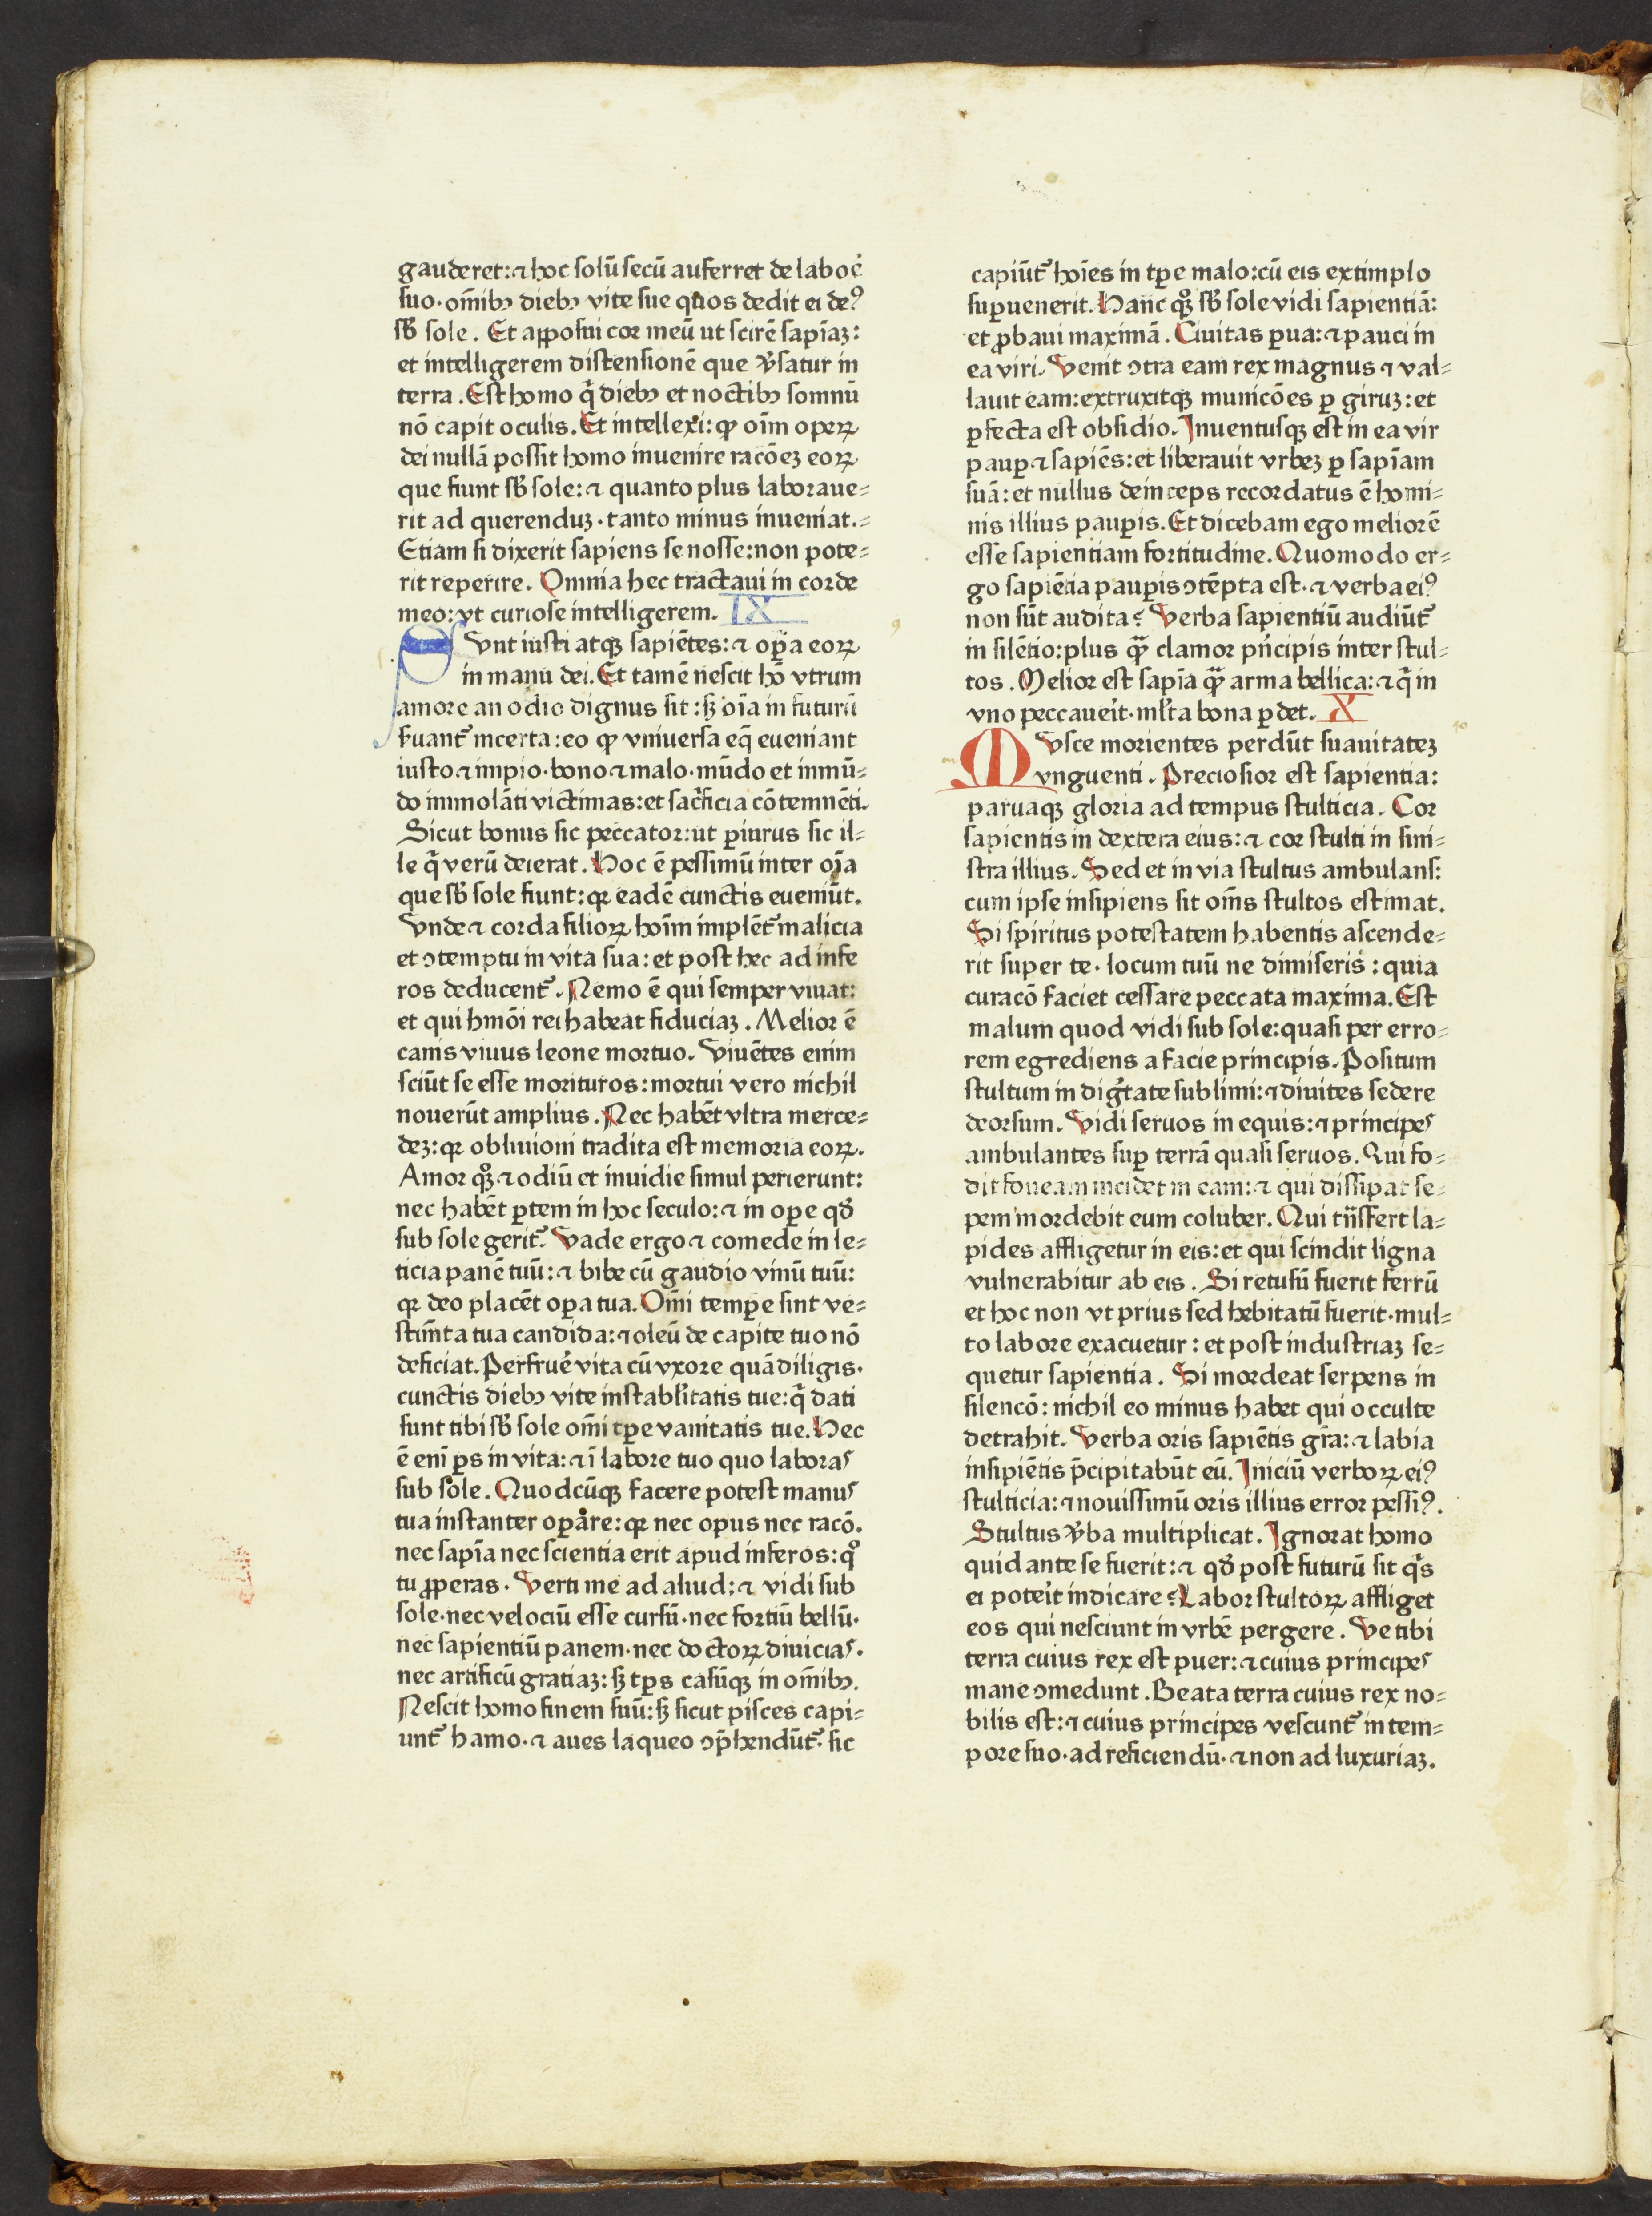 gauderet:⁊ hoc solū secū auferret de laboꝛ̉
suo·om̄ibꝫ diebꝫ vite sue quos dedit ei deꝰ
sb̄ sole. Et apposui cor meū ut scirē sapīaꝫ:
et intelligerem distensionē que v̓satur in
terra. Est homo qͥ diebꝫ et noctibꝫ somnū
nō capit oculis. Et intellexi: ꝙ oīm operꝝ
dei nullā possit homo inuenire racōeꝫ eoꝝ
que fiunt sb̄ sole:⁊ quanto plus laboraue⸗
rit ad querenduꝫ·tanto minus inueniat.⸗
Etiam si dixerit sapiens se nosse:non pote⸗
rit reperire. Omnia hec tractaui in corde
meo:vt curiose intelligerem. IX
Sunt iusti atqꝫ sapiētes:⁊ oꝑa eoꝝ
in manu dei. Et tamē nescit hō vtrum
amore an odio dignus sit:sꝫ oīa in futurū
s̓uant᷑ incerta:eo ꝙ vniuersa eq̄ eueniant
iusto ⁊ impio·bono ⁊ malo·mūdo et inmū⸗
do immolāti victimas:et sac̓ficia cōtemnēti.
Sicut bonus sic peccator:ut ꝑiurus sic il⸗
le qͥ verū deierat. Hoc ē pessimū inter oīa
que sb̄ sole fiunt:qꝛ eadē cunctis eueniūt.
Vnde ⁊ corda filioꝝ hoīm implēt᷑ malicia
et ↄtemptu in vita sua:et post hec ad infe
ros deducent᷑. Nemo ē qui semper viuat:
et qui hmōi rei habeat fiduciaꝫ. Melior ē
canis viuus leone mortuo. Viuētes enim
sciūt se esse morituros:mortui vero nichil
nouerūt amplius. Nec habēt vltra merce⸗
deꝫ:qꝛ obliuioni tradita est memoria eoꝝ.
Amor qꝫ̊ ⁊ odiū et inuidie simul perierunt:
nec habēt ꝑtem in hoc seculo:⁊ in oꝑe qd̄
sub sole gerit᷑. Vade ergo ⁊ comede in le⸗
ticia panē tuū:⁊ bibe cū gaudio vinū tuū:
qꝛ deo placēt oꝑa tua. Om̄i temꝑe sint ve⸗
stim̄ta tua candida:⁊ oleū de capite tuo nō
deficiat. Perfrue᷑ vita cū vxore quā diligis·
cunctis diebꝫ vite instabl̓itatis tue:qͥ dati
sunt tibi sb̄ sole om̄i tꝑe vanitatis tue. Hec
ē eni ꝑs in vita:⁊ ī labore tuo quo laboras
sub sole. Quodcūqꝫ facere potest manus
tua instanter oꝑare:qꝛ nec opus nec racō.
nec sapīa nec scientia erit apud inferos:qͦ
tu ꝓperas. Verti me ad aliud:⁊ vidi sub
sole·nec velociū esse cursū·nec fortiū bellū·
nec sapientiū panem·nec doctoꝝ diuicias.
nec artificū gratiaꝫ:sꝫ tꝑs casūqꝫ in om̄ibꝫ.
Nescit homo finem suū:sꝫ sicut pisces capi⸗
unt᷑ hamo·⁊ aues laqueo ↄp̄hendūt᷑·sic
capiūt᷑ hoīes in tꝑe malo:cū eis extimplo
suꝑuenerit. Hanc qꝫ̊ sb̄ sole vidi sapientiā:
et ꝓbaui maximā. Ciuitas ꝑua:⁊ pauci in
ea viri. Venit ↄtra eam rex magnus ⁊ val⸗
lauit eam:extruxitqꝫ municōes ꝑ giruꝫ:et
ꝑfecta est obsidio. Inuentusqꝫ est in ea vir
pauꝑ ⁊ sapiēs:et liberauit vrbeꝫ ꝑ sapīam
suā:et nullus deinceps recordatus ē homi⸗
nis illius pauꝑis. Et dicebam ego meliorē
esse sapientiam fortitudine. Quomodo er⸗
go sapiētia pauꝑis ↄtēpta est·⁊ verba eiꝰ
non sūt audita? Verba sapientiū audiūt᷑
in silētio:plus qͣꝫ clamor pͥncipis inter stul⸗
tos. Melior est sapīa qͣꝫ arma bellica:⁊ qͥ in
vno peccaue᷑it·ml̓ta bona ꝑdet. X
Musce morientes perdūt suauitateꝫ
vnguenti. Preciosior est sapientia:
paruaqꝫ gloria ad tempus stulticia. Cor
sapientis in dextera eius:⁊ cor stulti in sini⸗
stra illius. Sed et in via stultus ambulans:
cum ipse insipiens sit om̄s stultos estimat.
Si spiritus potestatem habentis ascende⸗
rit super te·locum tuū ne dimiseris:quia
curacō faciet cessare peccata maxima. Est
malum quod vidi sub sole:quasi per erro⸗
rem egrediens a facie principis. Positum
stultum in dig̓tate sublimi:⁊ diuites sedere
deorsum. Vidi seruos in equis:⁊ principes
ambulantes suꝑ terrā quasi seruos. Qui fo⸗
dit foueam incidet in eam:⁊ qui dissipat se⸗
pem mordebit eum coluber. Qui trāsfert la⸗
pides affligetur in eis:et qui scindit ligna
vulnerabitur ab eis. Si retusū fuerit ferrū
et hoc non vt prius sed hebitatū fuerit·mul⸗
to labore exacuetur:et post industriaꝫ se⸗
quetur sapientia. Si mordeat serpens in
silencō:nichil eo minus habet qui occulte
detrahit. Verba oris sapiētis gr̄a:⁊ labia
insipiētis p̄cipitabūt eū. Iniciū verboꝝ eiꝰ
stulticia:⁊ nouissimū oris illius error pessiꝰ.
Stultus v̓ba multiplicat. Ignorat homo
quid ante se fuerit:⁊ qd̄ post futurū sit qͥs
ei pote᷑it indicare? Labor stultoꝝ affliget
eos qui nesciunt in vrbē pergere. Ve tibi
terra cuius rex est puer:⁊ cuius principes
mane ↄmedunt. Beata terra cuius rex no⸗
bilis est:⁊ cuius principes vescunt᷑ in tem⸗
pore suo·ad reficiendū·⁊ non ad luxuriaꝫ.